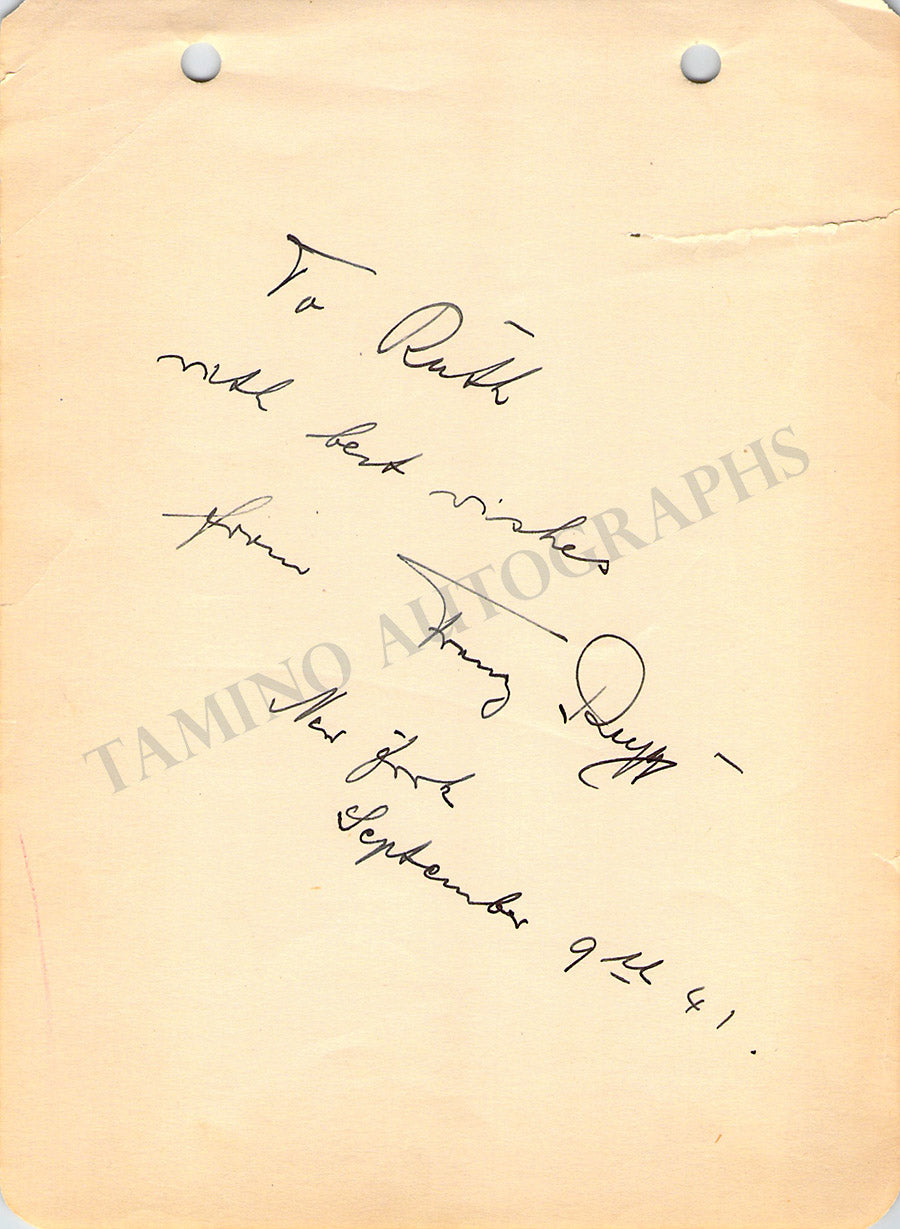 To Ruth
with best wishes
from Franz Rupp
New York
September 9th 41.
TAMINO AUTOGRAPHS